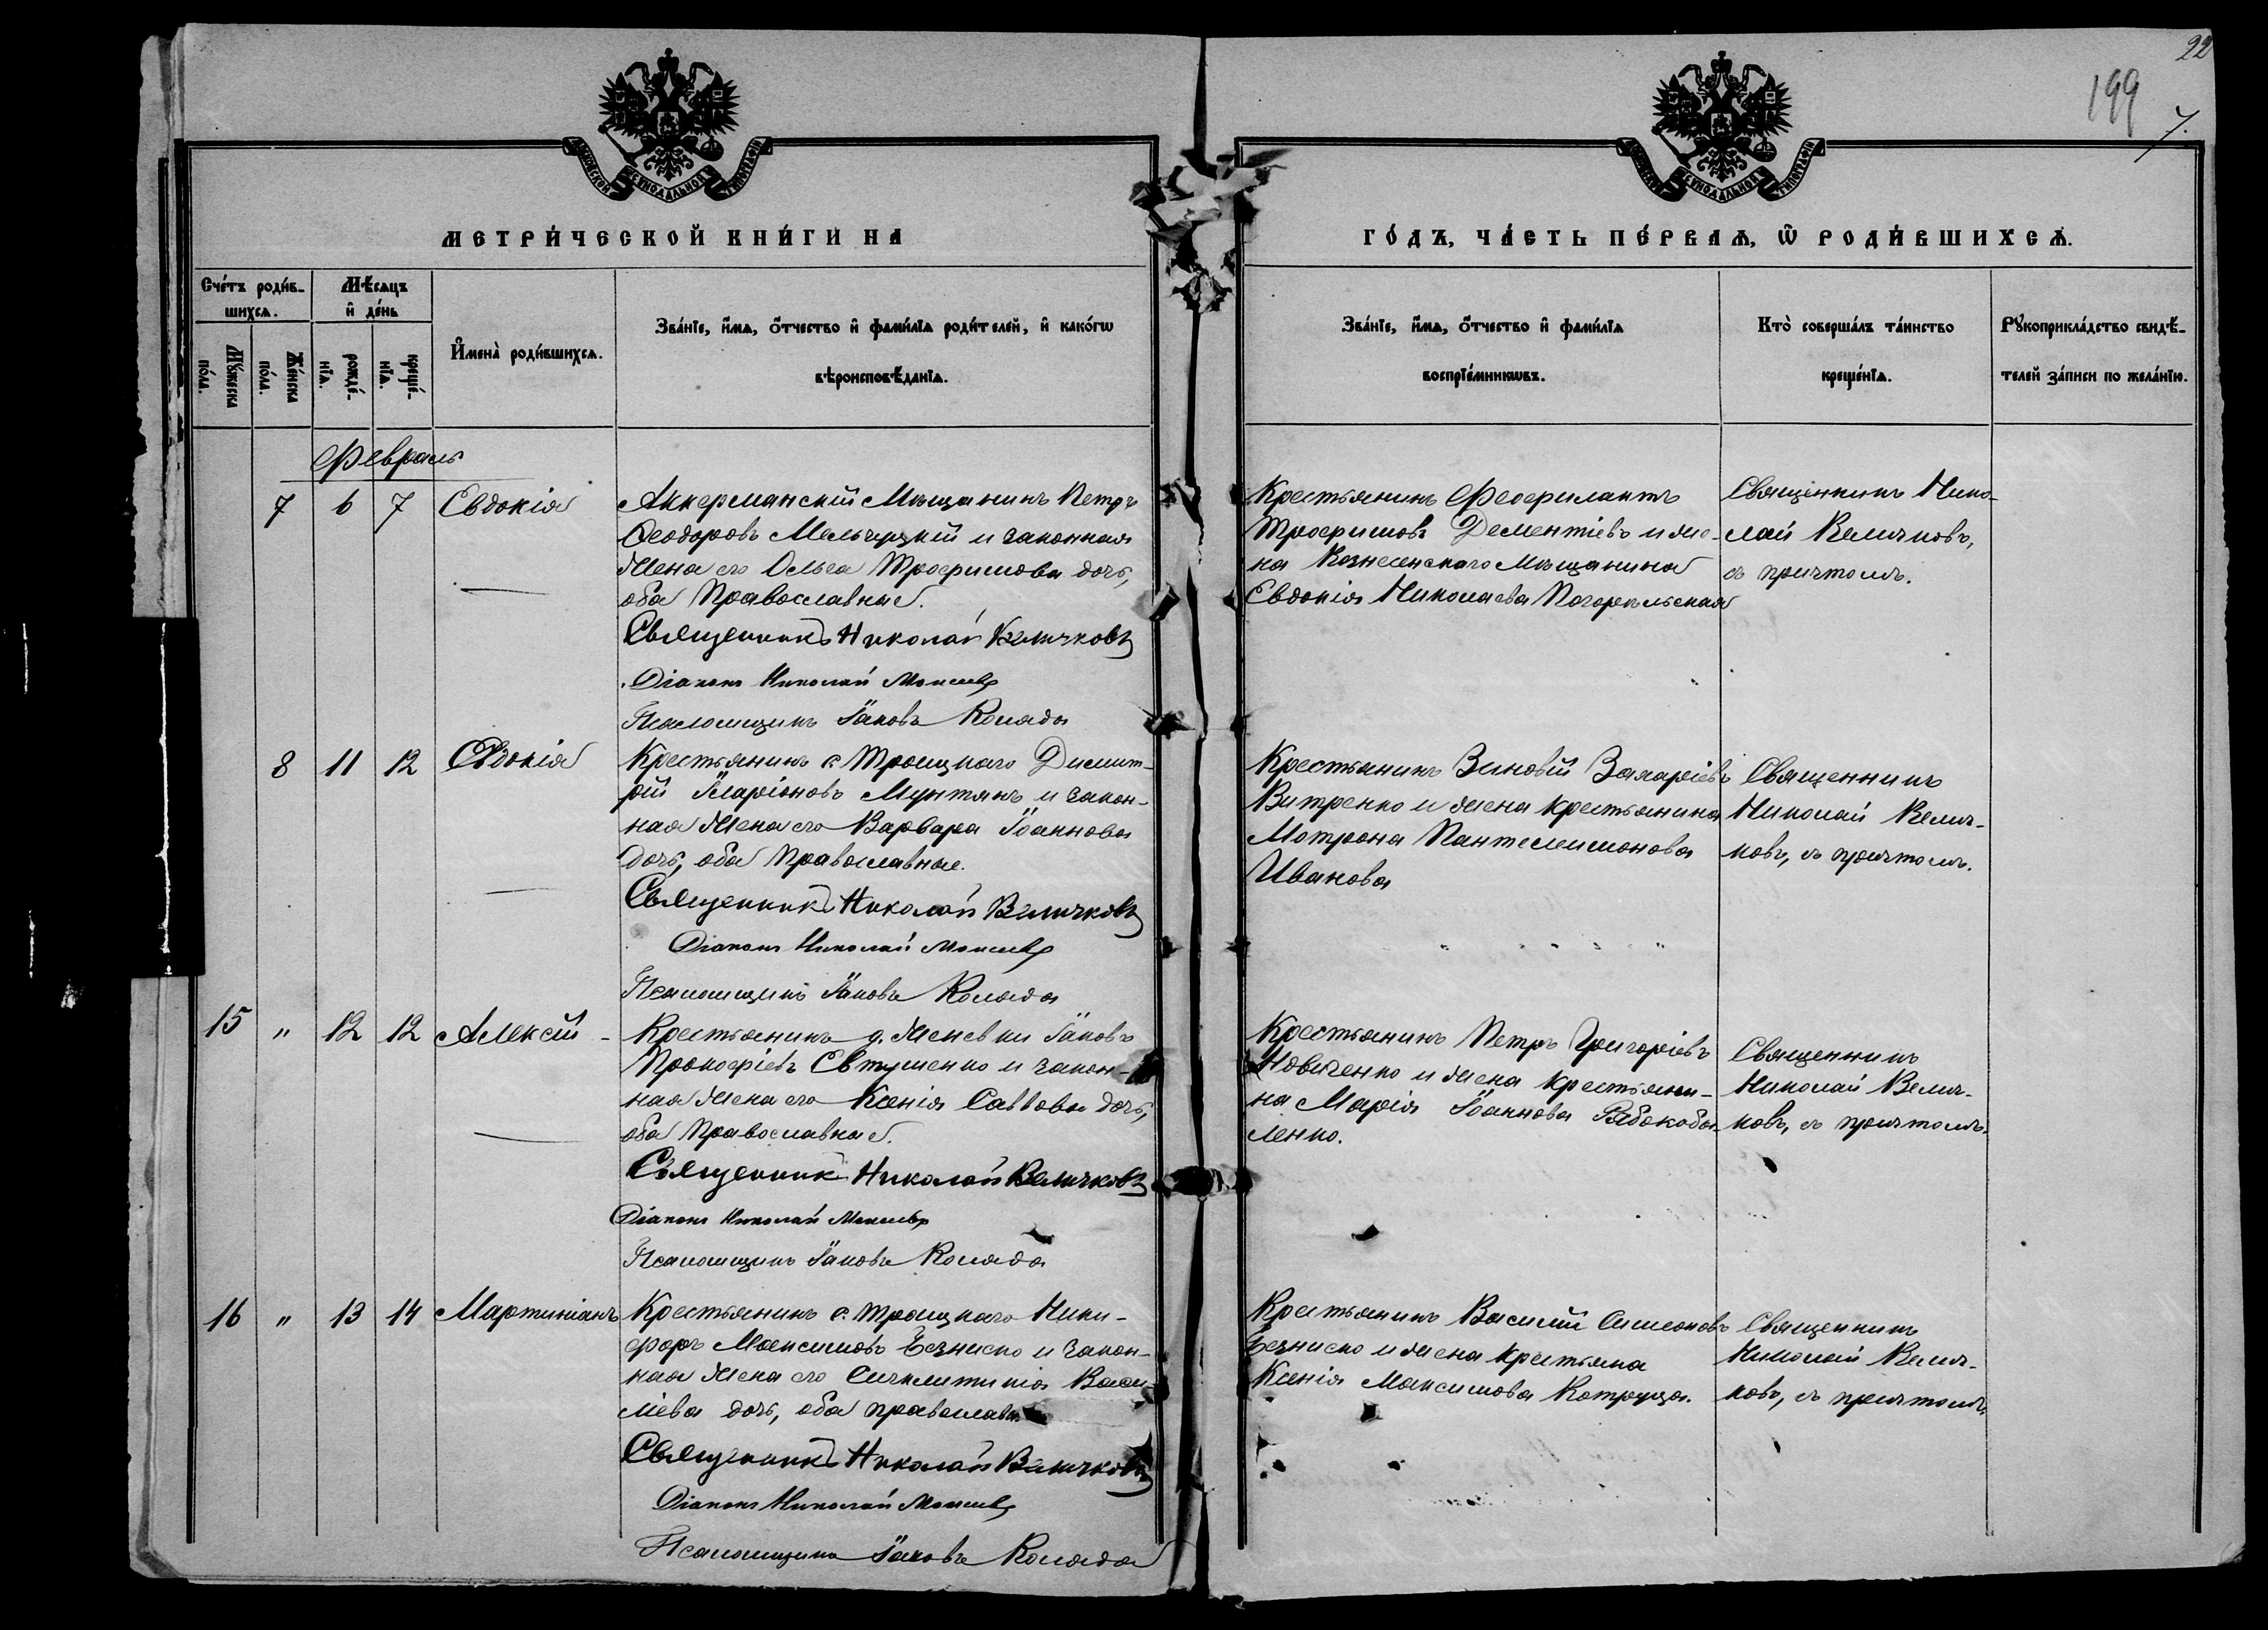 22
199
7.
МОСКОВСКОЙ СѴНОДАЛЬНОЙ ТИПОГРАФІИ
МОСКОВСКОЙ СѴНОДАЛЬНОЙ ТИПОГРАФІИ
МЕТРИ́ЧЕСКОЙ КНИ́ГИ НА
ГО́ДЪ, ЧА́СТЬ ПЕ́РВАѦ, Ѿ РОДИ́ВШИХСѦ.
Сче́тъ роди́в-
шихсѧ.
Мꙋ́жеска
по́ла.
Же́нска
по́ла.
Мѣ́сѧцъ
и҆ де́нь
рожде́-
нїѧ.
креще́-
нїѧ.
И҆мена̀ роди́вшихсѧ.
Зва́нїе, и҆́мѧ, о҆́тчество и҆ фами́лїѧ роди́телей, и҆ како́гѡ
вѣроисповѣ́данїѧ.
Зва́нїе, и҆́мѧ, о҆́тчество и҆ фами́лїѧ
воспрїе́мникѡвъ.
Кто̀ соверша́лъ та́инство
креще́нїѧ.
Рꙋкоприкла́дство свидѣ́-
телей за́писи по жела́нїю.
Февраль
7 6 7 Евдокія
Аккерманскій Мѣщанинъ Петръ
Ѳеодоровъ Мельчуцкій и законная
жена его Ольга Трофимова дочь,
оба Православные.
Священникъ Николай Величковъ
Діаконъ Николай
Псаломщикъ Іаковъ Коляда
Крестьянинъ Феофилактъ
Трофимовъ Дементіевъ и же-
на Вознесенскаго Мѣщанина
Евдокія Николаева Погорѣльская
Священникъ Нико-
лай Величковъ,
съ причтомъ.
8 11 12 Евдокія
Крестьянинъ с. Троицкаго Димит-
рій Иларіоновъ Мунтянъ и закон-
ная жена его Варвара Іоаннова
дочь, оба Православные.
Священникъ Николай Величковъ
Діаконъ Николай
Псаломщикъ Іаковъ Коляда
Крестьянинъ Зиновій Захаріевъ
Витренко и жена крестьянина
Мотрона Пантелеимонова
Иванова
Священникъ
Николай Велич-
ковъ, съ причтомъ.
15 " 12 12 Алексѣй -
Крестьянинъ д. Іаковъ
Прокофіевъ Евтушенко и закон-
ная жена его Ксенія Саввова дочь,
оба Православные.
Священникъ Николай Величковъ
Діаконъ Николай
Псаломщикъ Іаковъ Коляда
Крестьянинъ Петръ Григоріевъ
Новиченко и жена крестьяни-
на Марія Іоаннова Рябокобы-
ленко.
Священникъ
Николай Велич-
ковъ, съ причтомъ.
16 " 13 14 Мартиніанъ
Крестьянинъ с. Троицкаго Ники-
форъ Максимовъ и закон-
ная жена его Васи-
ліева дочь, оба православн
Священникъ Николай Величковъ
Діаконъ Николай
Псаломщикъ Іаковъ Коляда
Крестьянинъ Василій Симеоновъ
и жена крестьяна
Ксенія Максимова Котруца.
Священникъ
Николай Велич-
ковъ, съ причтомъ.